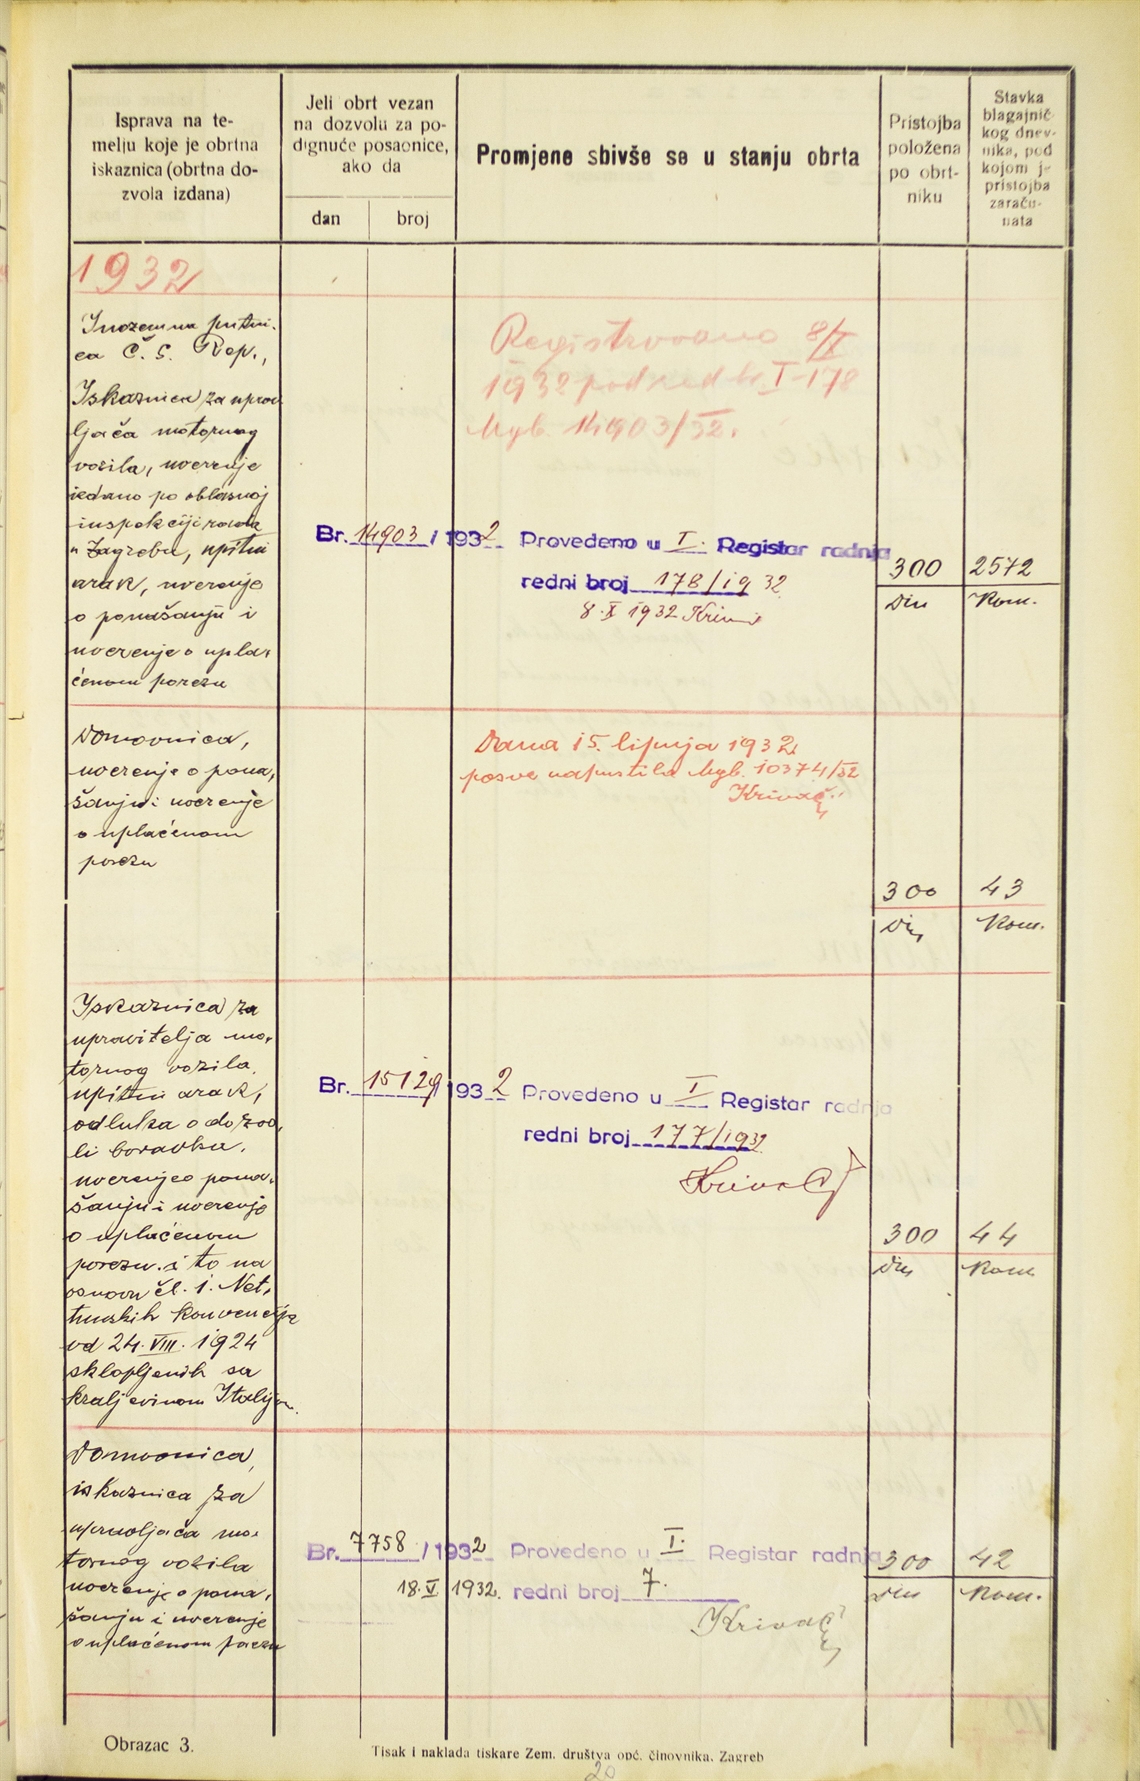 Isprava na te-
melju koje je obrtna
iskaznica (obrtna do-
zvola izdana)
Jeli obrt vezan
na dozvolu za po-
dignuće posaonice,
ako da
dan
broj
Promjene sbivše se u stanju obrta
Pristojba
položena
po obrt-
niku
Stavka
blagajnič
kog dnev-
nika, pod
kojom je
pristojba
zaraču-
nata
1932
Inozemna putni.
ca Č. S. Rep.,
Iskaznica za uprav
ljača motornog
vozila, uverenje
izdano po oblasnoj
inspekciji rada
u Zagrebu, upitni
arak, uverenje
o ponašanju i
uverenje o upla,
ćenom porezu
Registrovano 8/X
1932 pod red br I-178
Mgb. 14903/32.
Br. 14903 / 1932 Provedeno u I. Registar radnja
redni broj 178/1932
8. X 1932
300
2572
Din
Kom.
Domovnica,
uverenje o pona,
šanju i uverenje
o uplaćenom
porezu
Dana 15. lipnja 1932
posve napustila Mgb. 10374/32
Krivač
300
43
Din
Kom.
Iskaznica za
upravitelja mo,
tornog vozila,
upitni arak,
odluka o dozvo,
li boravka,
uverenje o pona,
šanju i uverenje
o uplaćenom
porezu i to na
osnovu čl. 1. Net,
tunskih konvencija
od 24. VIII. 1924
sklopljenih sa
kraljevinom Italijom.
Br. 15129 1932 Provedeno u I Registar radnja
redni broj 177/1932
Krivač
300
44
Din
Kom.
Domovnica,
iskaznica za
upravljača mo,
tornog vozila
uverenje o pona,
šanju i uverenje
o uplaćenom porezu
Br. 7758 / 1932 Provedeno u I. Registar radnja
18. V 1932. redni broj 7.
Krivač
300
42
Din
Kom.
Obrazac 3.
Tisak i naklada tiskare Zem. društva opć. činovnika, Zagreb
20